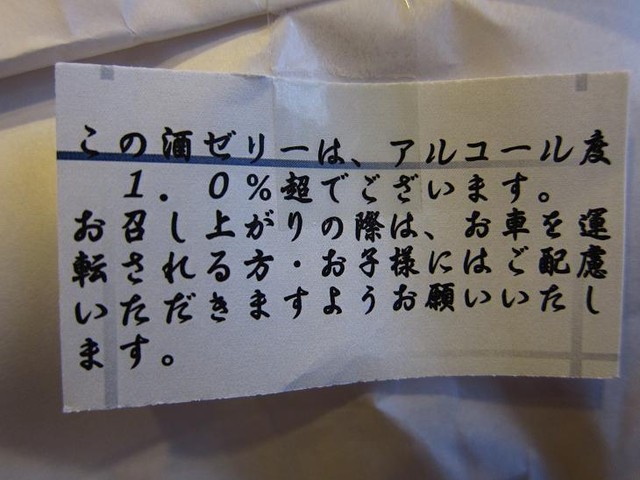 この酒ゼリーは、アルコール度
１．０％超でございます。
お召し上がりの際は、お車を運
転される方・お子様にはご配慮
いただきますようお願いいたし
ます。